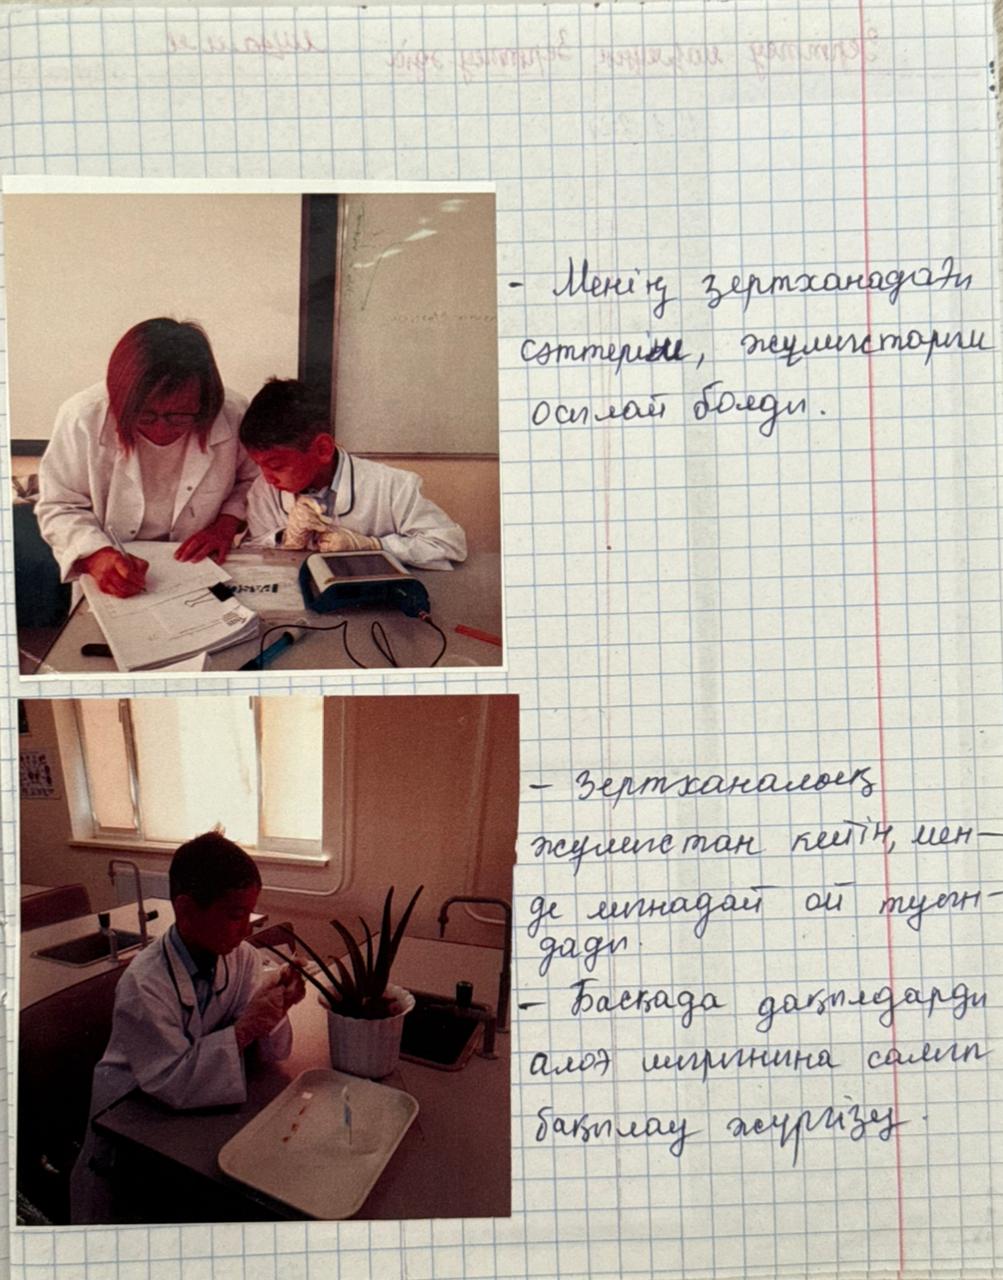 - Менің зертханадағы
сәттерім, жұмыстарым
осылай болды.
- Зертханалық
жұмыстан кейін, мен-
де мынадай ой туын-
дады.
- Басқада дақылдарды
алоэ шырынына салып
бақылау жүргізу.